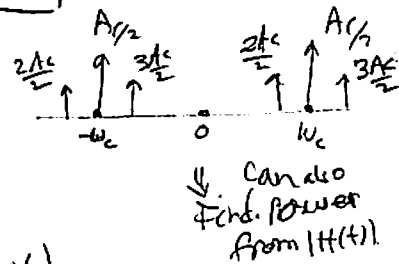 Ac/2 Ac/2
2Ac/2 3Ac/2 2Ac/2 3Ac/2
-ωc 0 ωc
⇓ Can also
Find Power
from |H(t)|